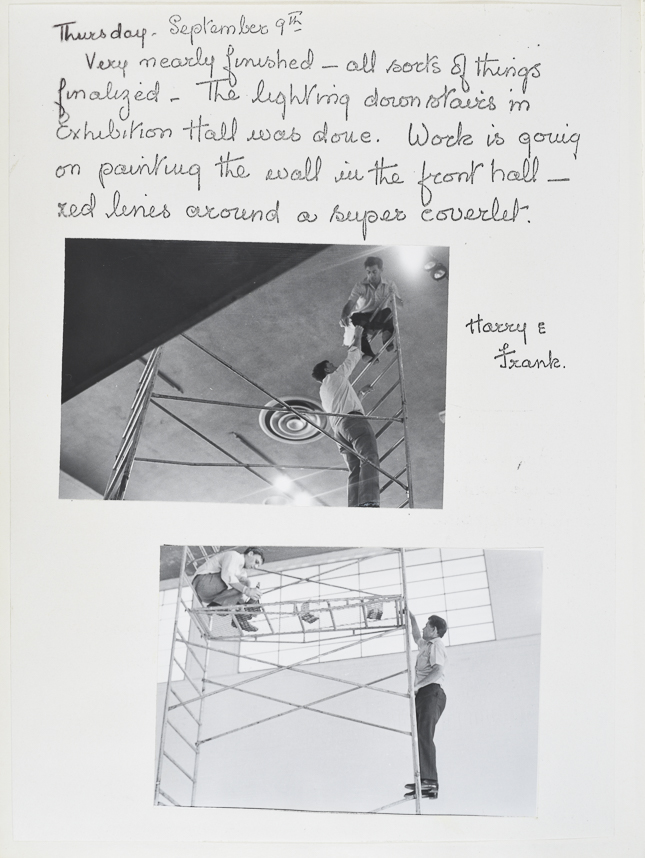 Thursday - September 9th
Very nearly finished - all sorts of things
finalized - The lighting downstairs in
Exhibition Hall was done. Work is going
on painting the wall in the front hall -
red lines around a super coverlet.
Harry &
Frank.